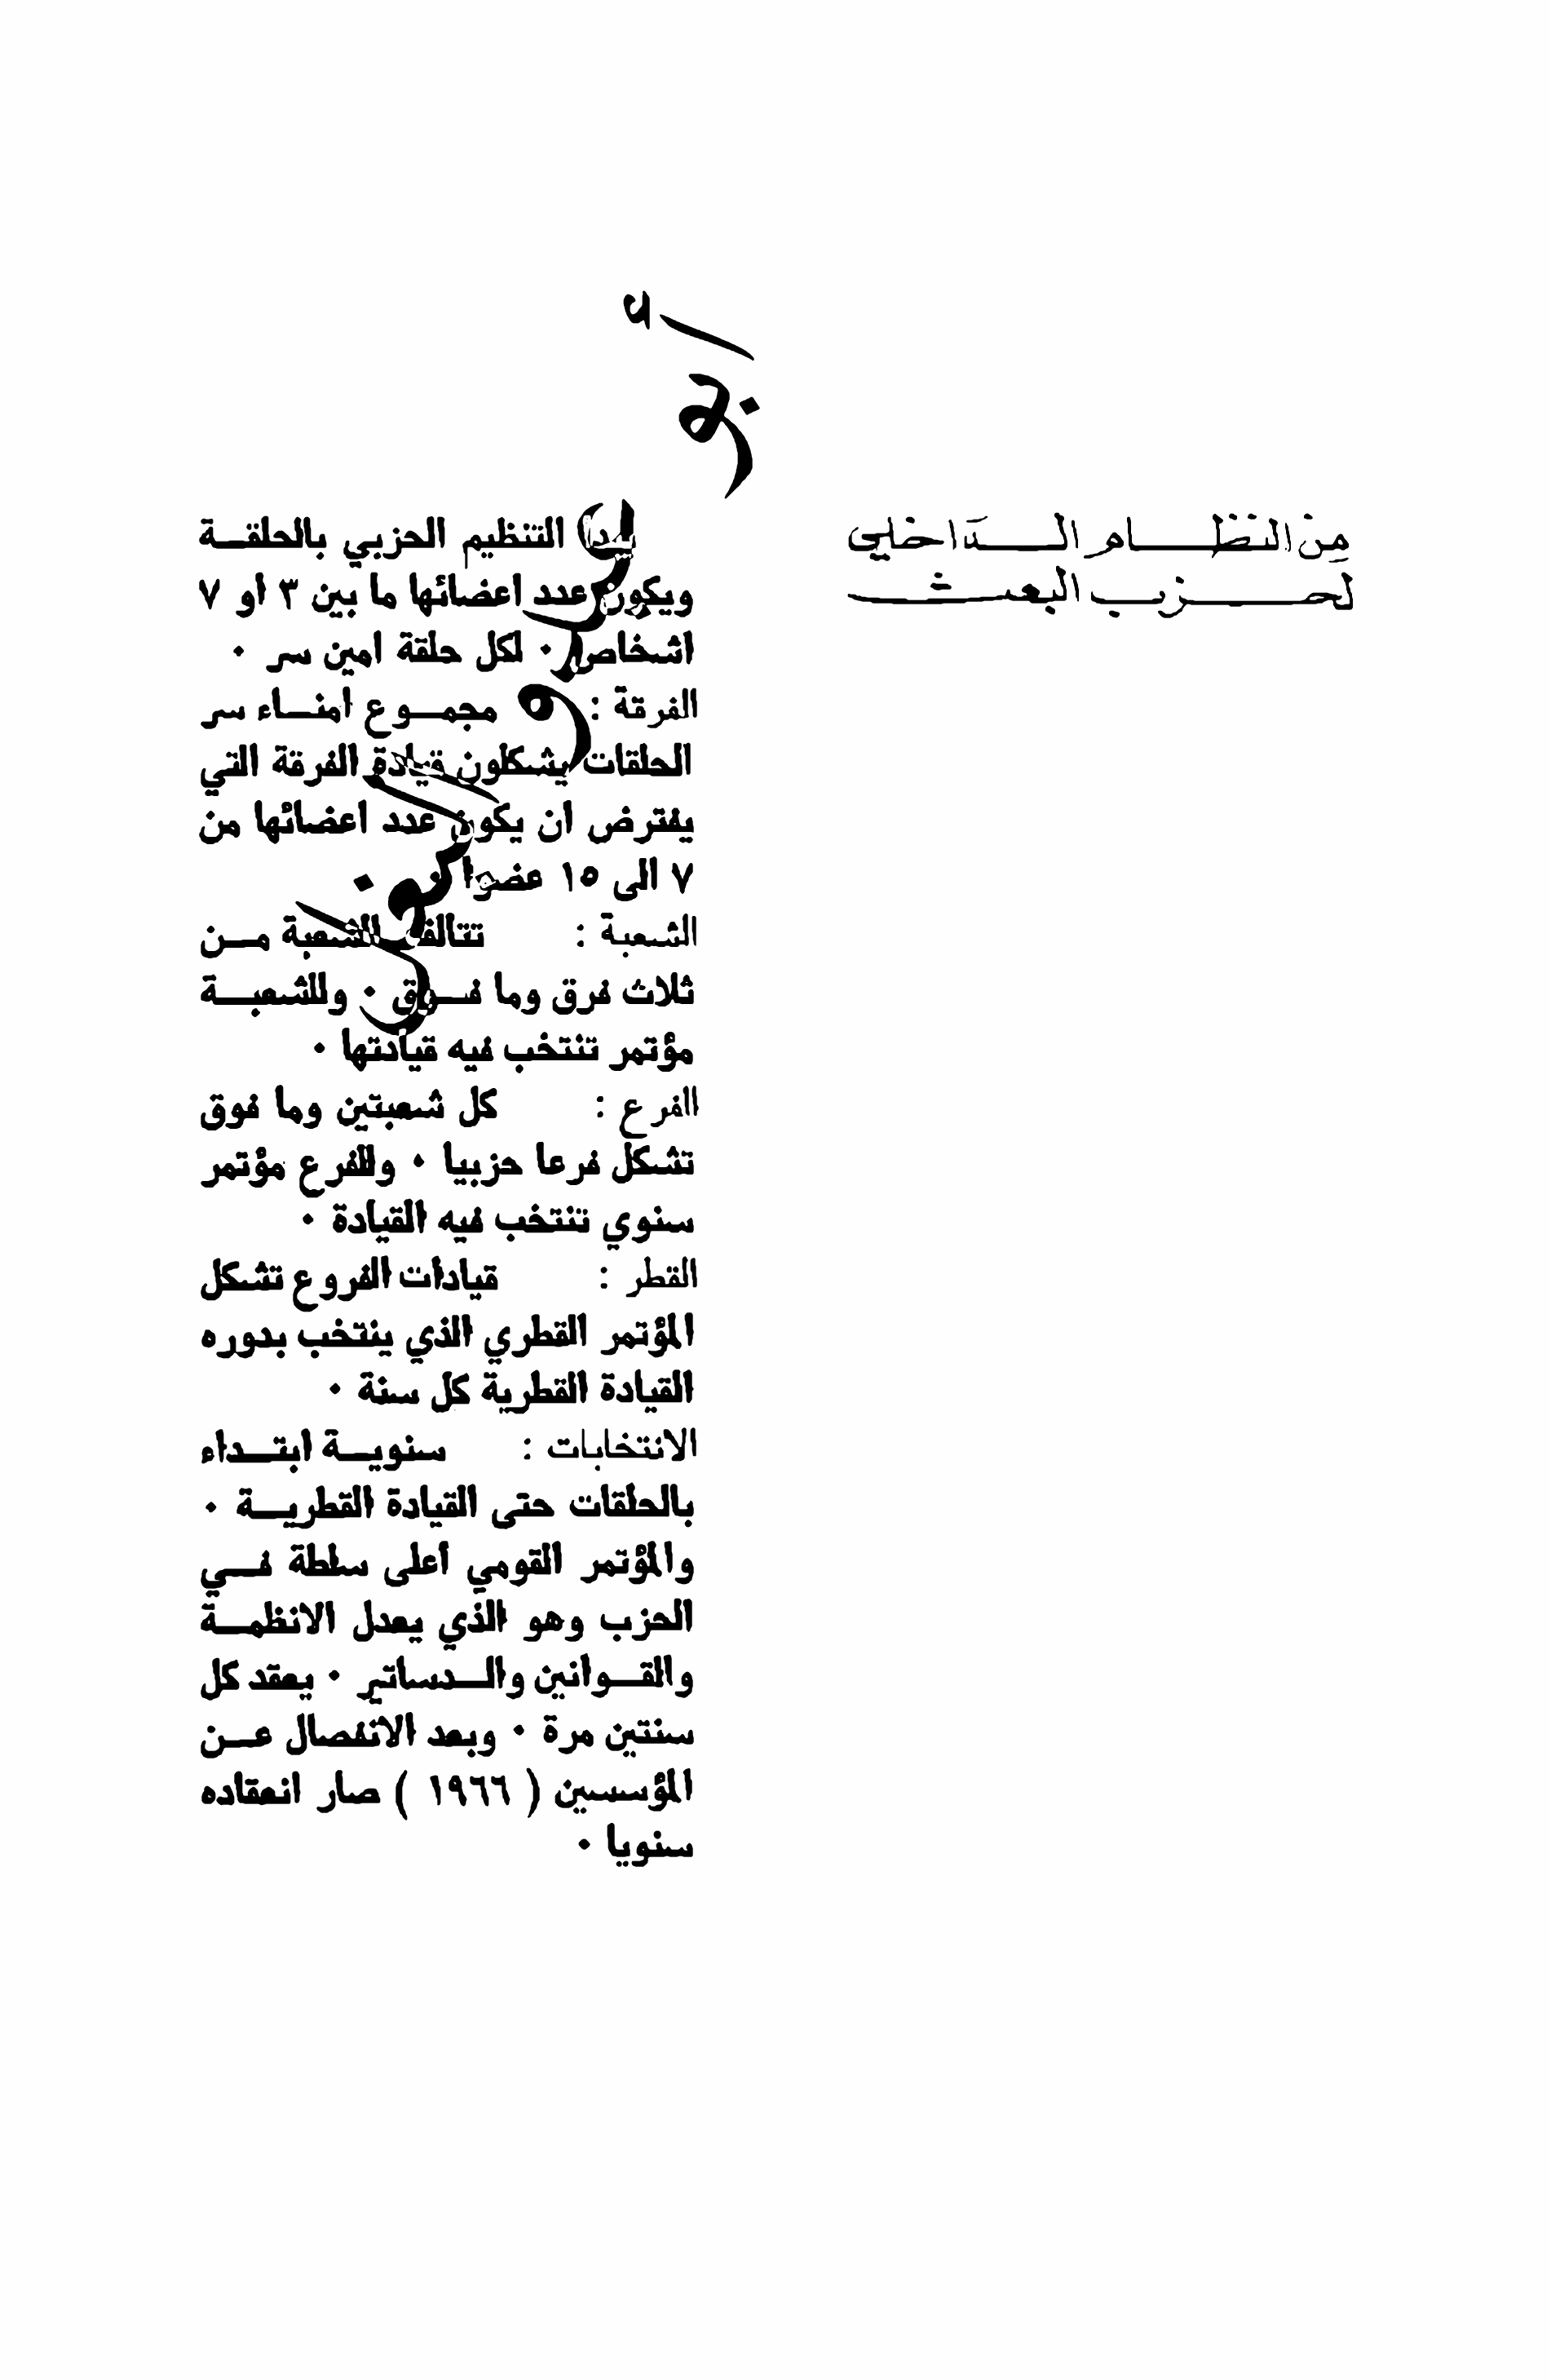 من النظام الداخلي
لحزب البعث
يبدا التنظيم الحزبي بالحلقة
ويكون عدد اعضائها ما بين ٣ او ٧
اشخاص ٠ لكل حلقة امين سر ٠
الفرقة : مجموع امناء سر
الحلقات يشكلون قيادة الفرقة التي
يفترض ان يكون عدد اعضائها من
٧ الى ١٥ عضوا ٠
الشعبة : تتالف الشعبة من
ثلاث فرق وما فوق ٠ وللشعبة
مؤتمر تنتخب فيه قيادتها ٠
الفرع : كل شعبتين وما فوق
تشكل فرعا حزبيا ٠ وللفرع مؤتمر
سنوي تنتخب فيه القيادة ٠
القطر : قيادات الفروع تشكل
المؤتمر القطري الذي ينتخب بدوره
القيادة القطرية كل سنة ٠
الانتخابات : سنوية ابتداء
بالحلقات حتى القيادة القطرية ٠
والمؤتمر القومي أعلى سلطة في
الحزب وهو الذي يعدل الانظمة
والقوانين والدساتير ٠ يعقد كل
سنتين مرة ٠ وبعد الانفصال عن
المؤسسين ( ١٩٦٦ ) صار انعقاده
سنويا ٠